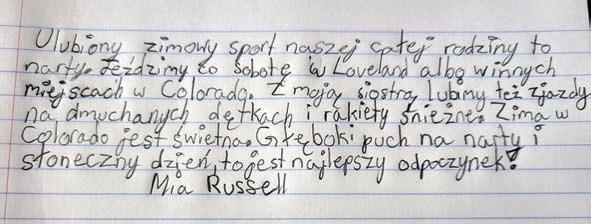 Ulubiony zimowy sport naszej całej rodziny to
narty. Jeździmy co sobotę w Loveland albo winnych
miejscach w Colorado. Z moją siostrą lubimy też zjazdy
na dmuchanych dętkach i rakiety śnieżne. Zima w
Colorado jest świetna. Głęboki puch na narty i
słoneczny dzień, to jest najlepszy odpoczynek!
Mia Russell